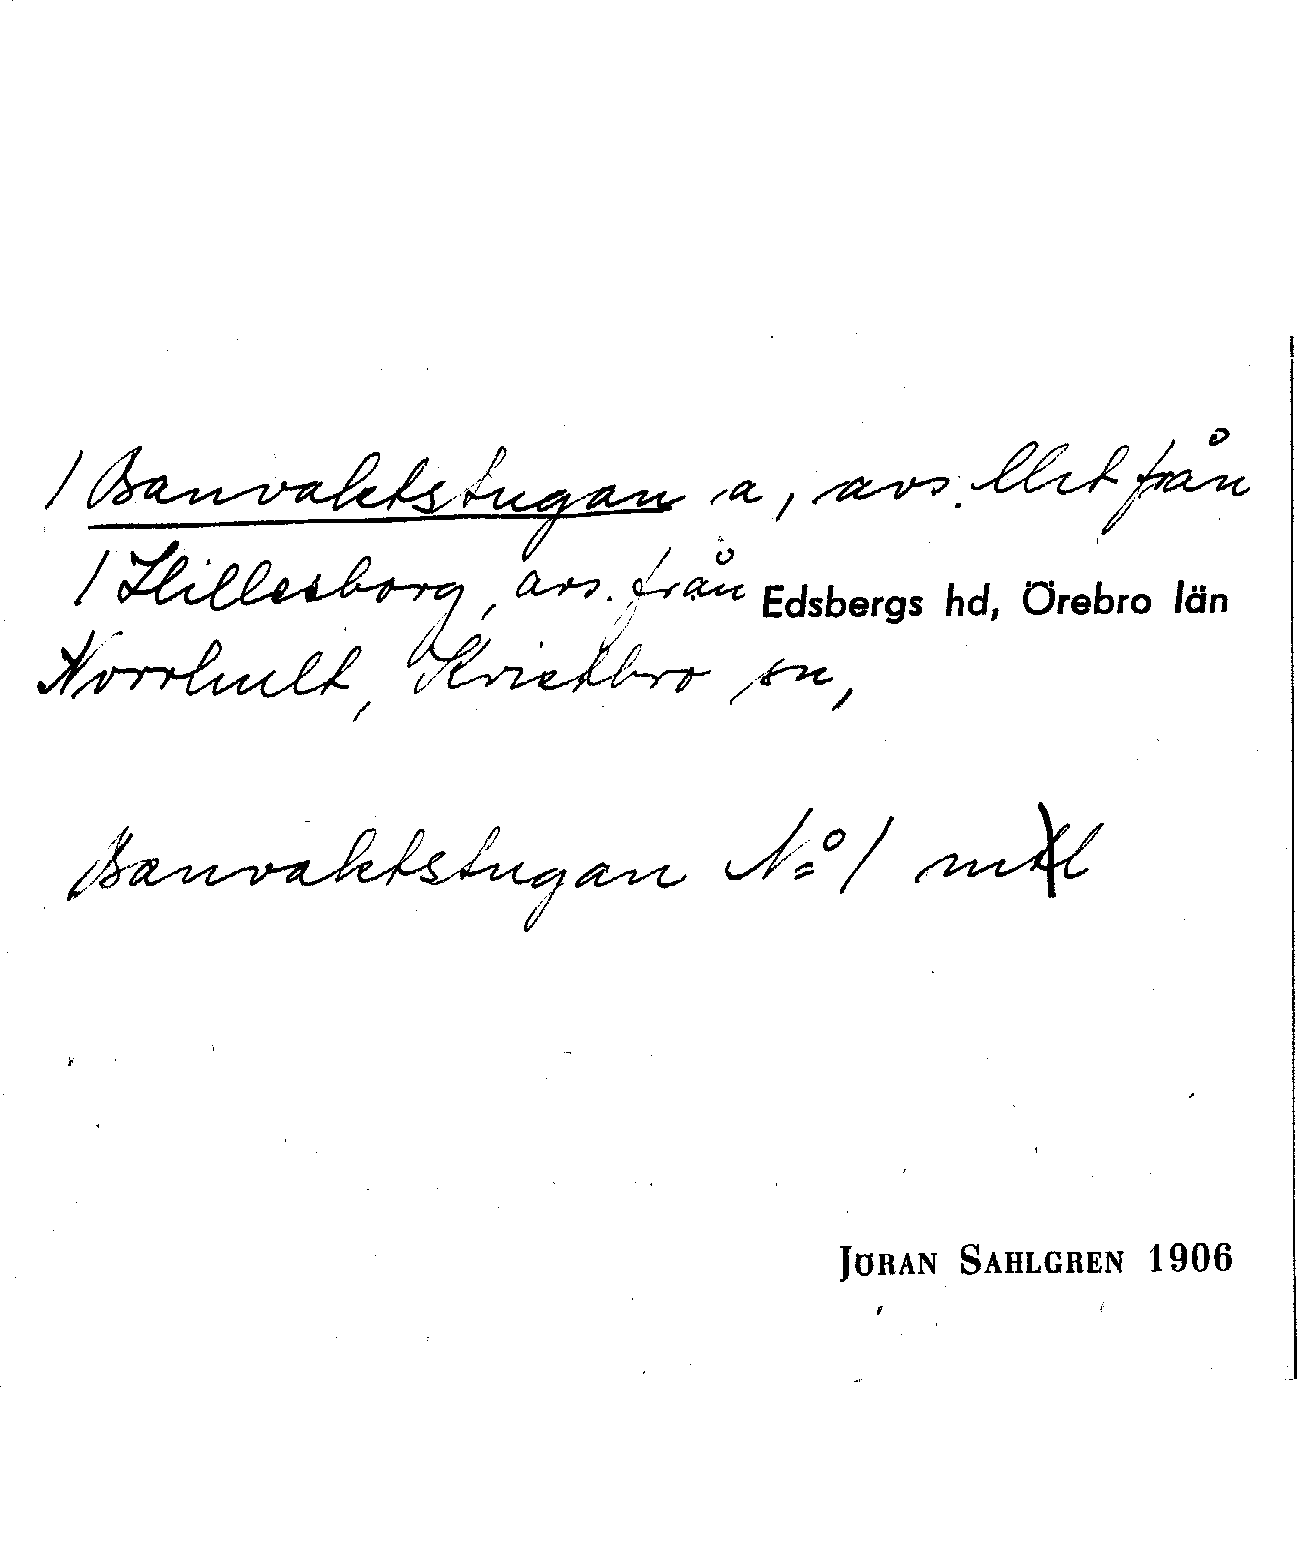 / Banvaktstugan a, avs. lht från
/ Hillesborg, avs. från Edsbergs hd, Örebro län
Norrhult, Kvistbro sn,
Banvaktstugan No 1 mtl
JÖRAN SAHLGREN 1906